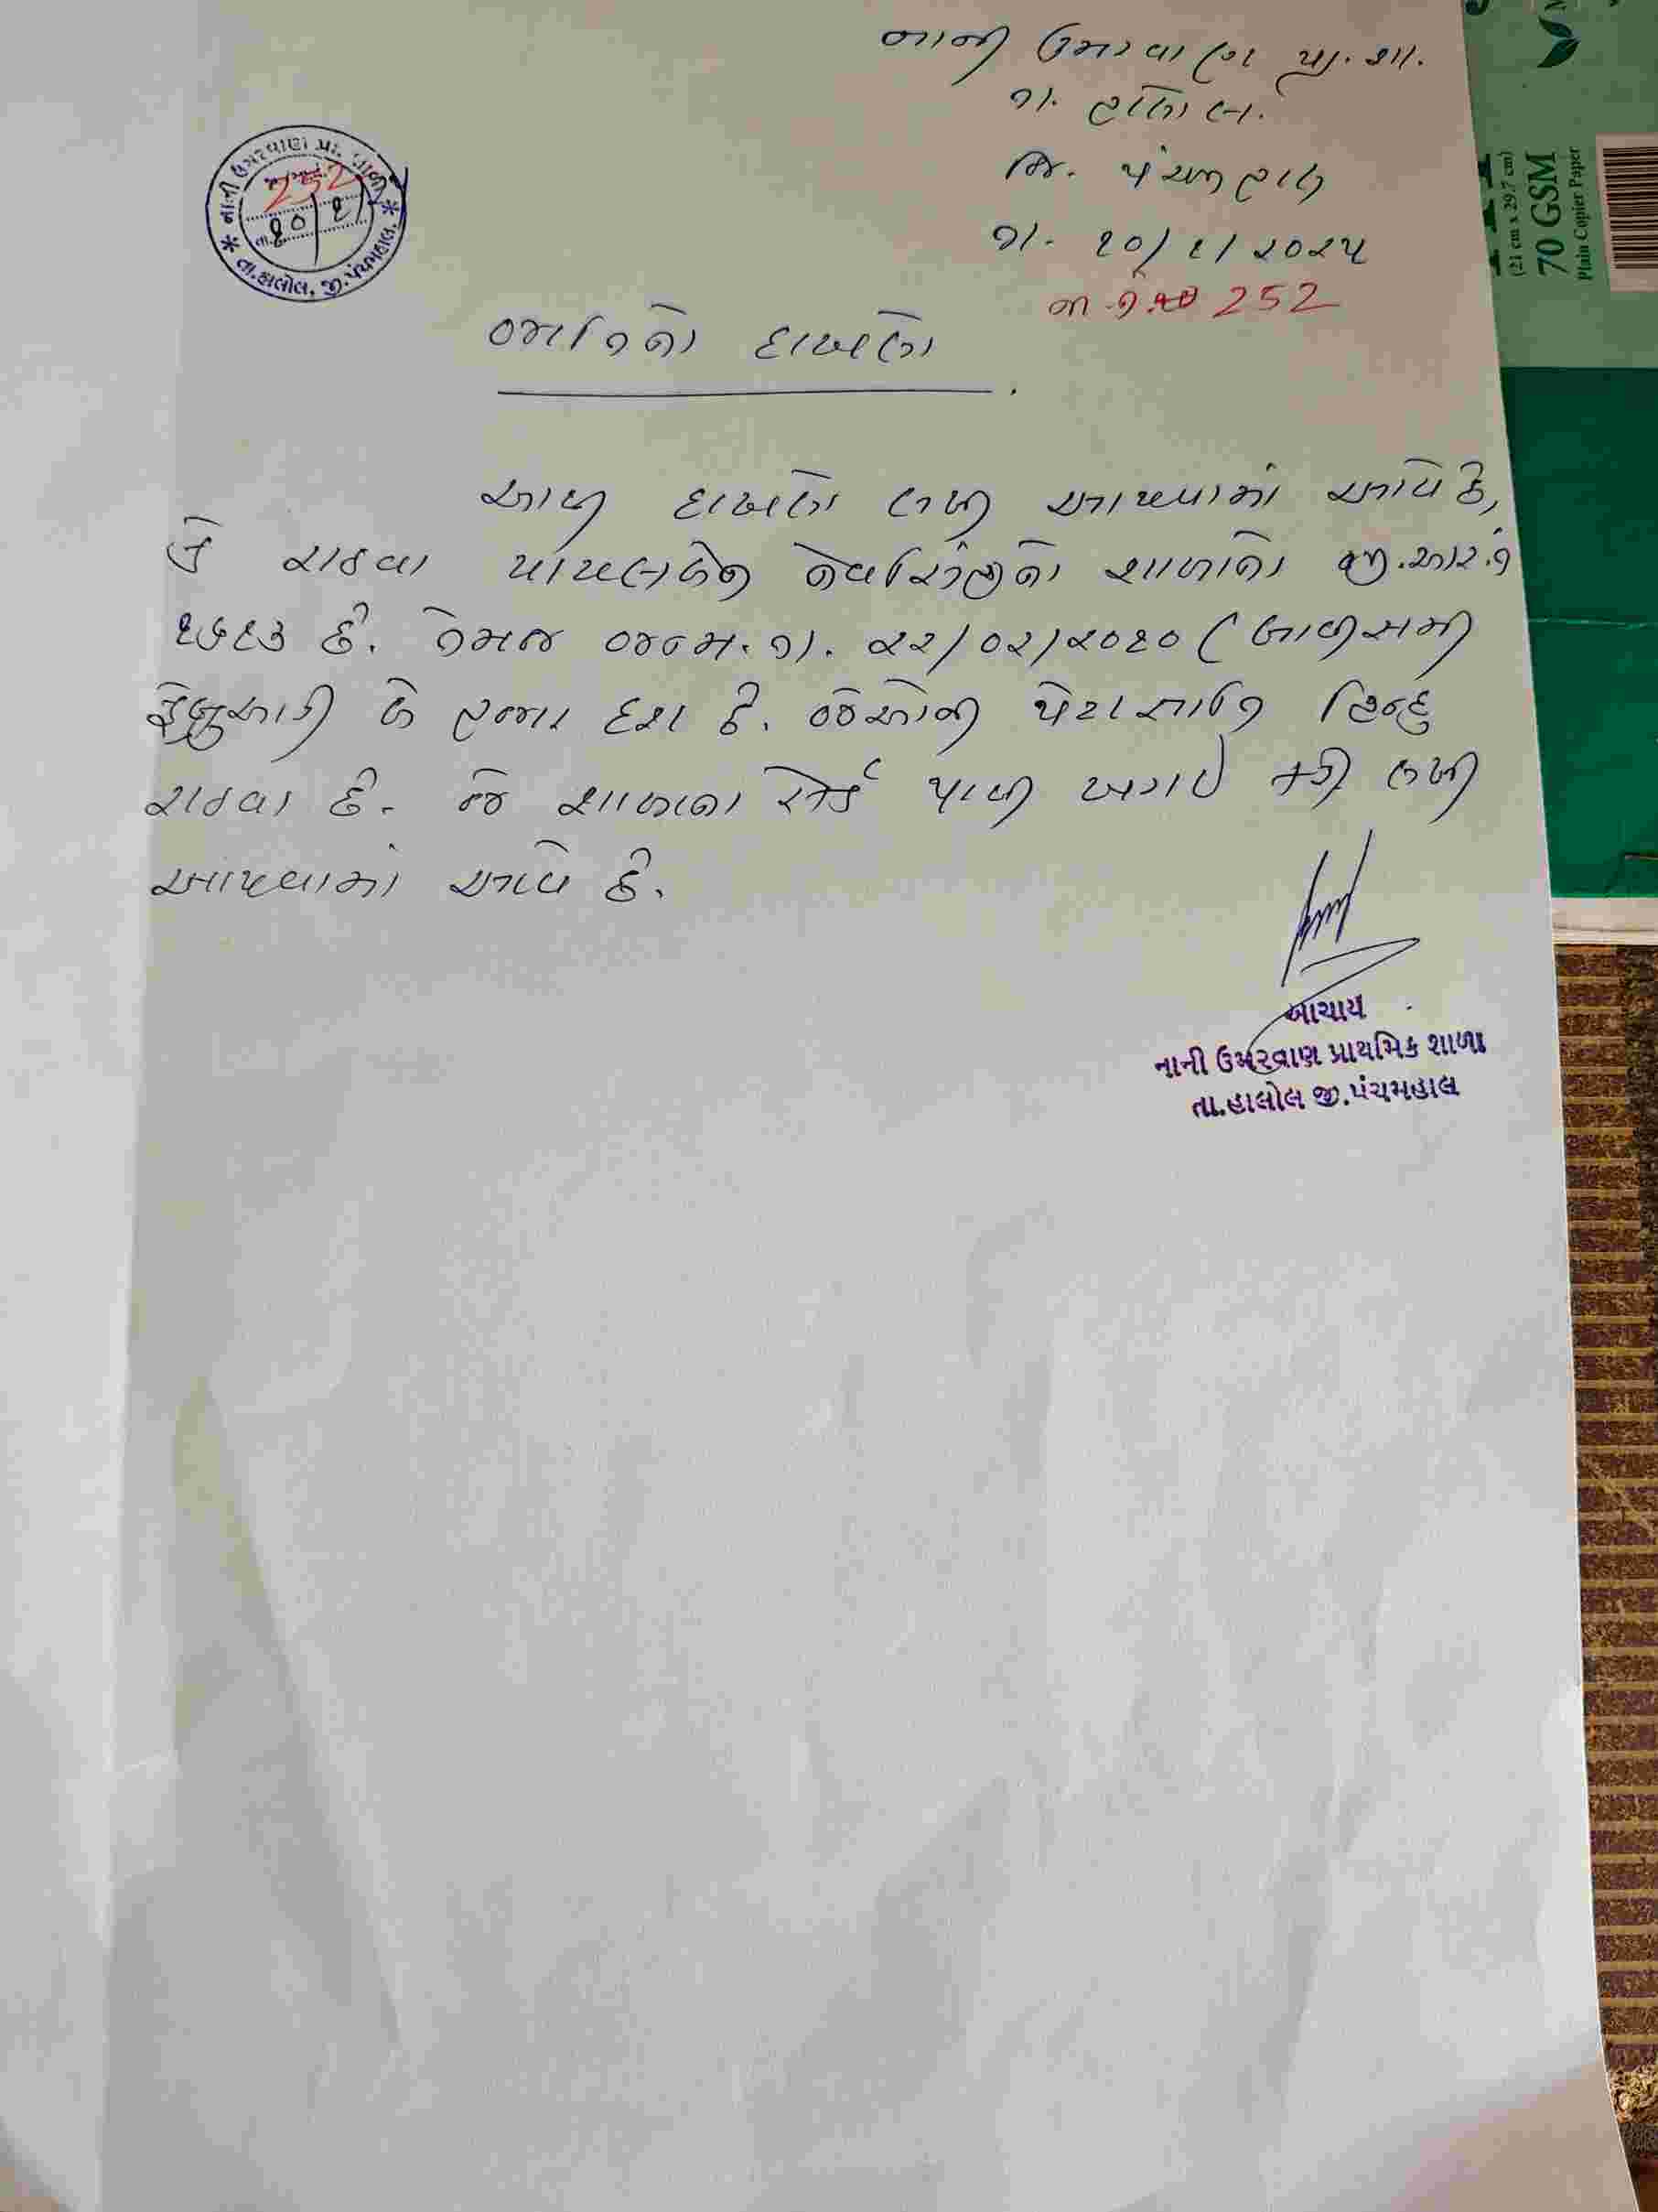 નાની ઉમરવાણ પ્રા. શા.
તા. હાલોલ.
જિ. પંચમહાલ
તા. ૧૦/૧/૨૦૨૫
જા.નં. 252
નાની ઉમરવાણ પ્રા. શાળા
252
તા. ૧૦/૧/
તા.હાલોલ, જી.પંચમહાલ.
જાતિનો દાખલો
આથી દાખલો લખી આપવામાં આવે છે,
કે રાઠવા પાયલબેન શાળાનો જી.આર.નં
૧૭૧૩ છે. તેમજ જન્મ.તા. ૨૨/૦૨/૨૦૧૦ (બાવીસમી
ફેબ્રુઆરી બે હજાર દશ છે. જેઓની પેટાજાતિ હિન્દુ
રાઠવા છે. જે શાળાના રેકર્ડ પરથી ખરાઈ કરી લખી
આપવામાં આવે છે.
આચાર્ય
નાની ઉમરવાણ પ્રાથમિક શાળા
તા.હાલોલ જી.પંચમહાલ
(21 cm x 29.7 cm)
70 GSM
Plain Copier Paper